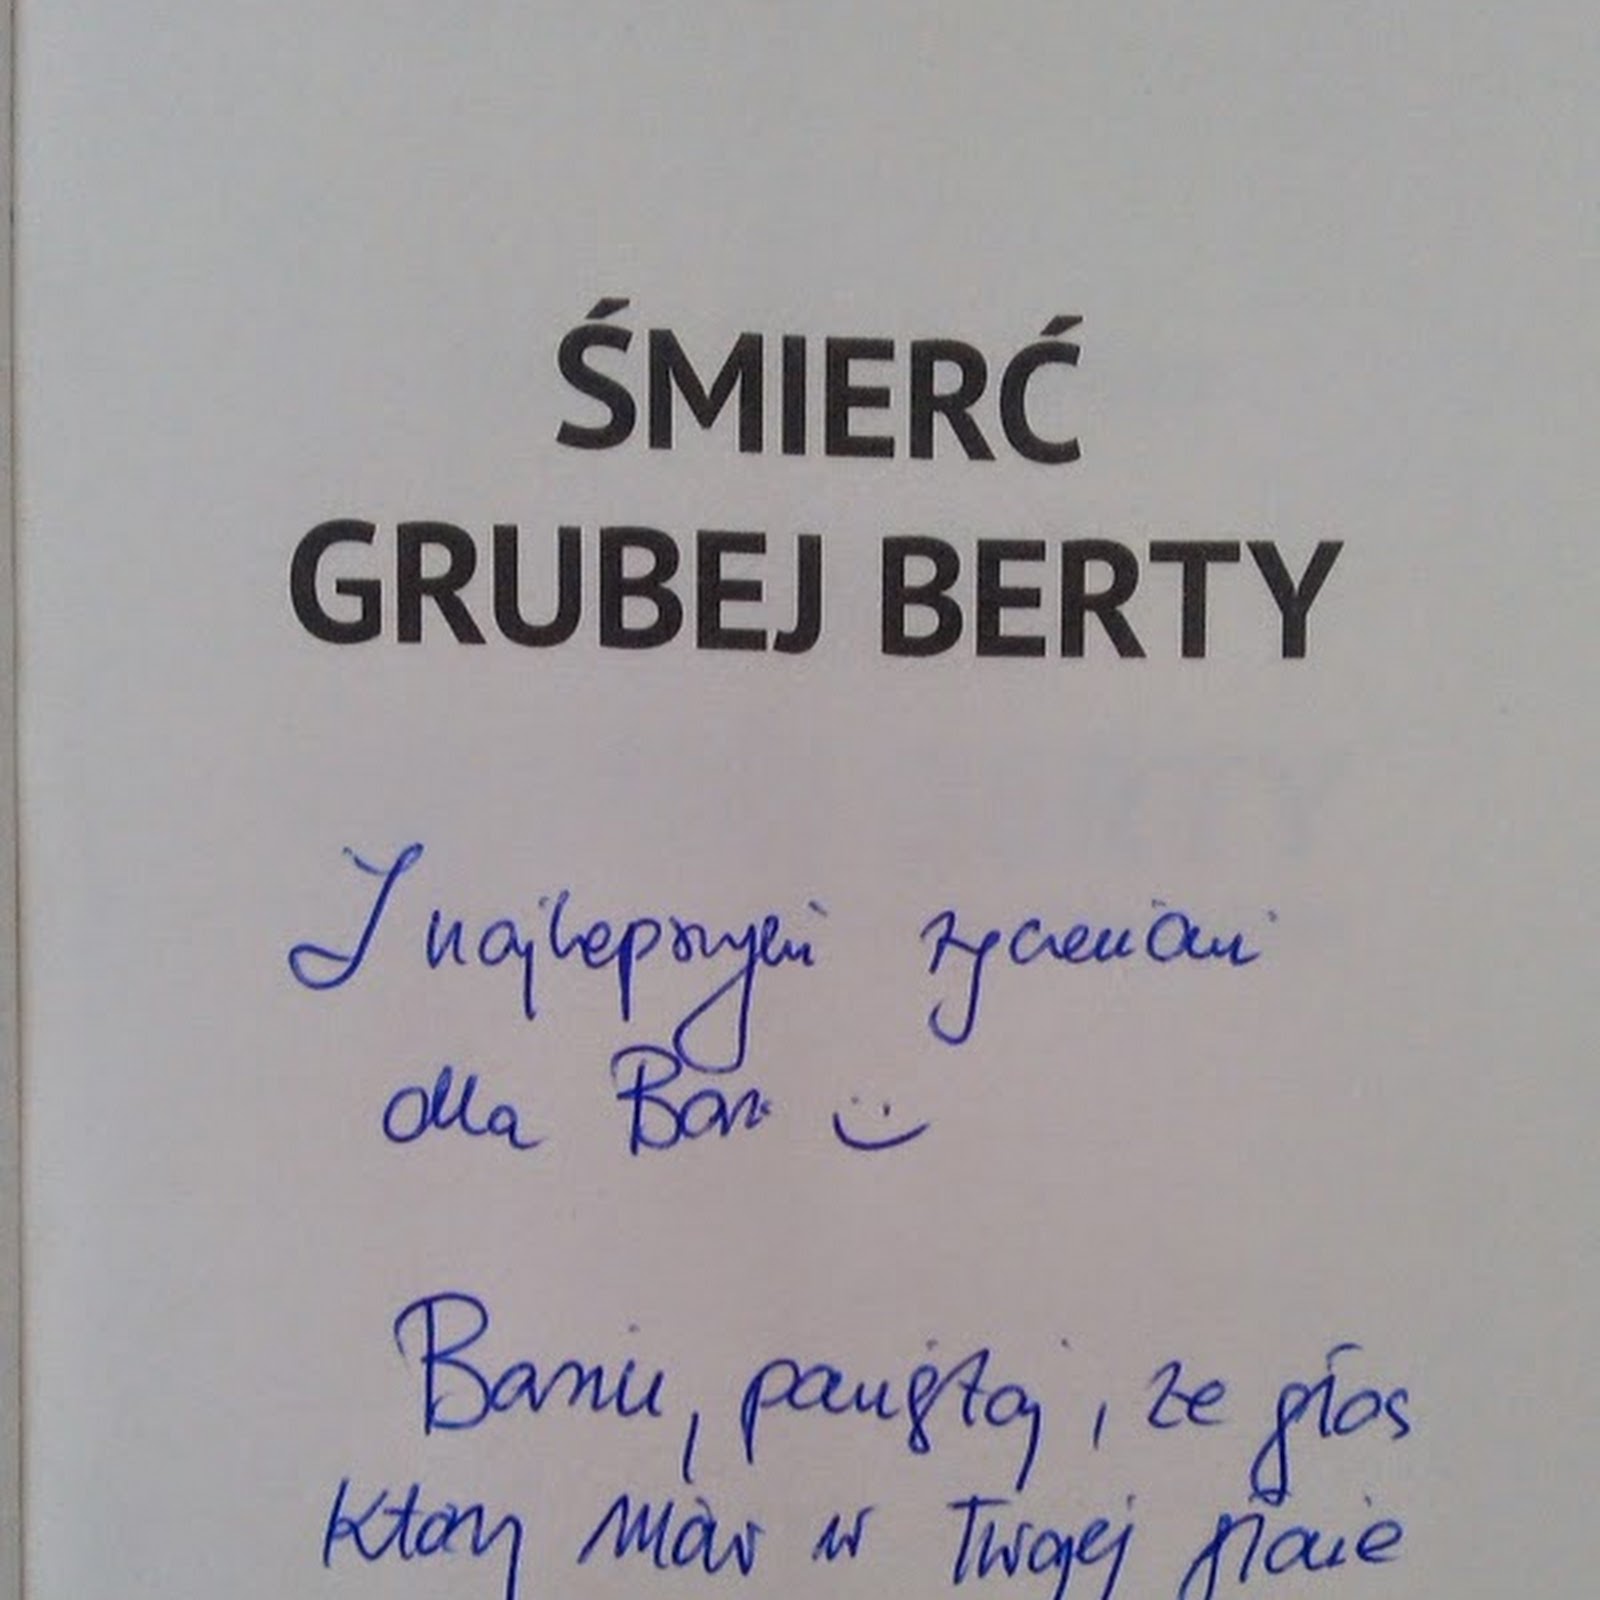 ŚMIERĆ
GRUBEJ BERTY
Z najlepszymi życzeniami
dla Basi :)
Basiu, pamiętaj, że głos
który masz w Twojej głowie